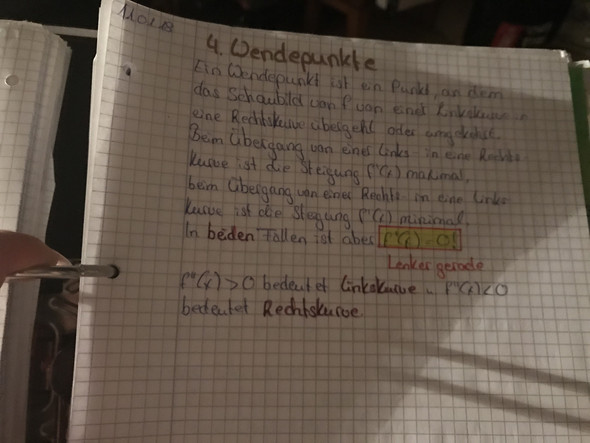 11.01.18
4. Wendepunkte
Ein Wendepunkt ist ein Punkt, an dem
das Schaubild von f von einer Linkskurve in
eine Rechtskurve übergeht oder umgekehrt.
Beim Übergang von einer Links- in eine Rechts-
kurve ist die Steigung f'(x) maximal,
beim Übergang von einer Rechts- in eine Links-
kurve ist die Steigung f'(x) minimal.
In beiden Fällen ist aber f''(x) = 0!
Lenker gerade
f''(x) > 0 bedeutet Linkskurve u. f''(x) < 0
bedeutet Rechtskurve